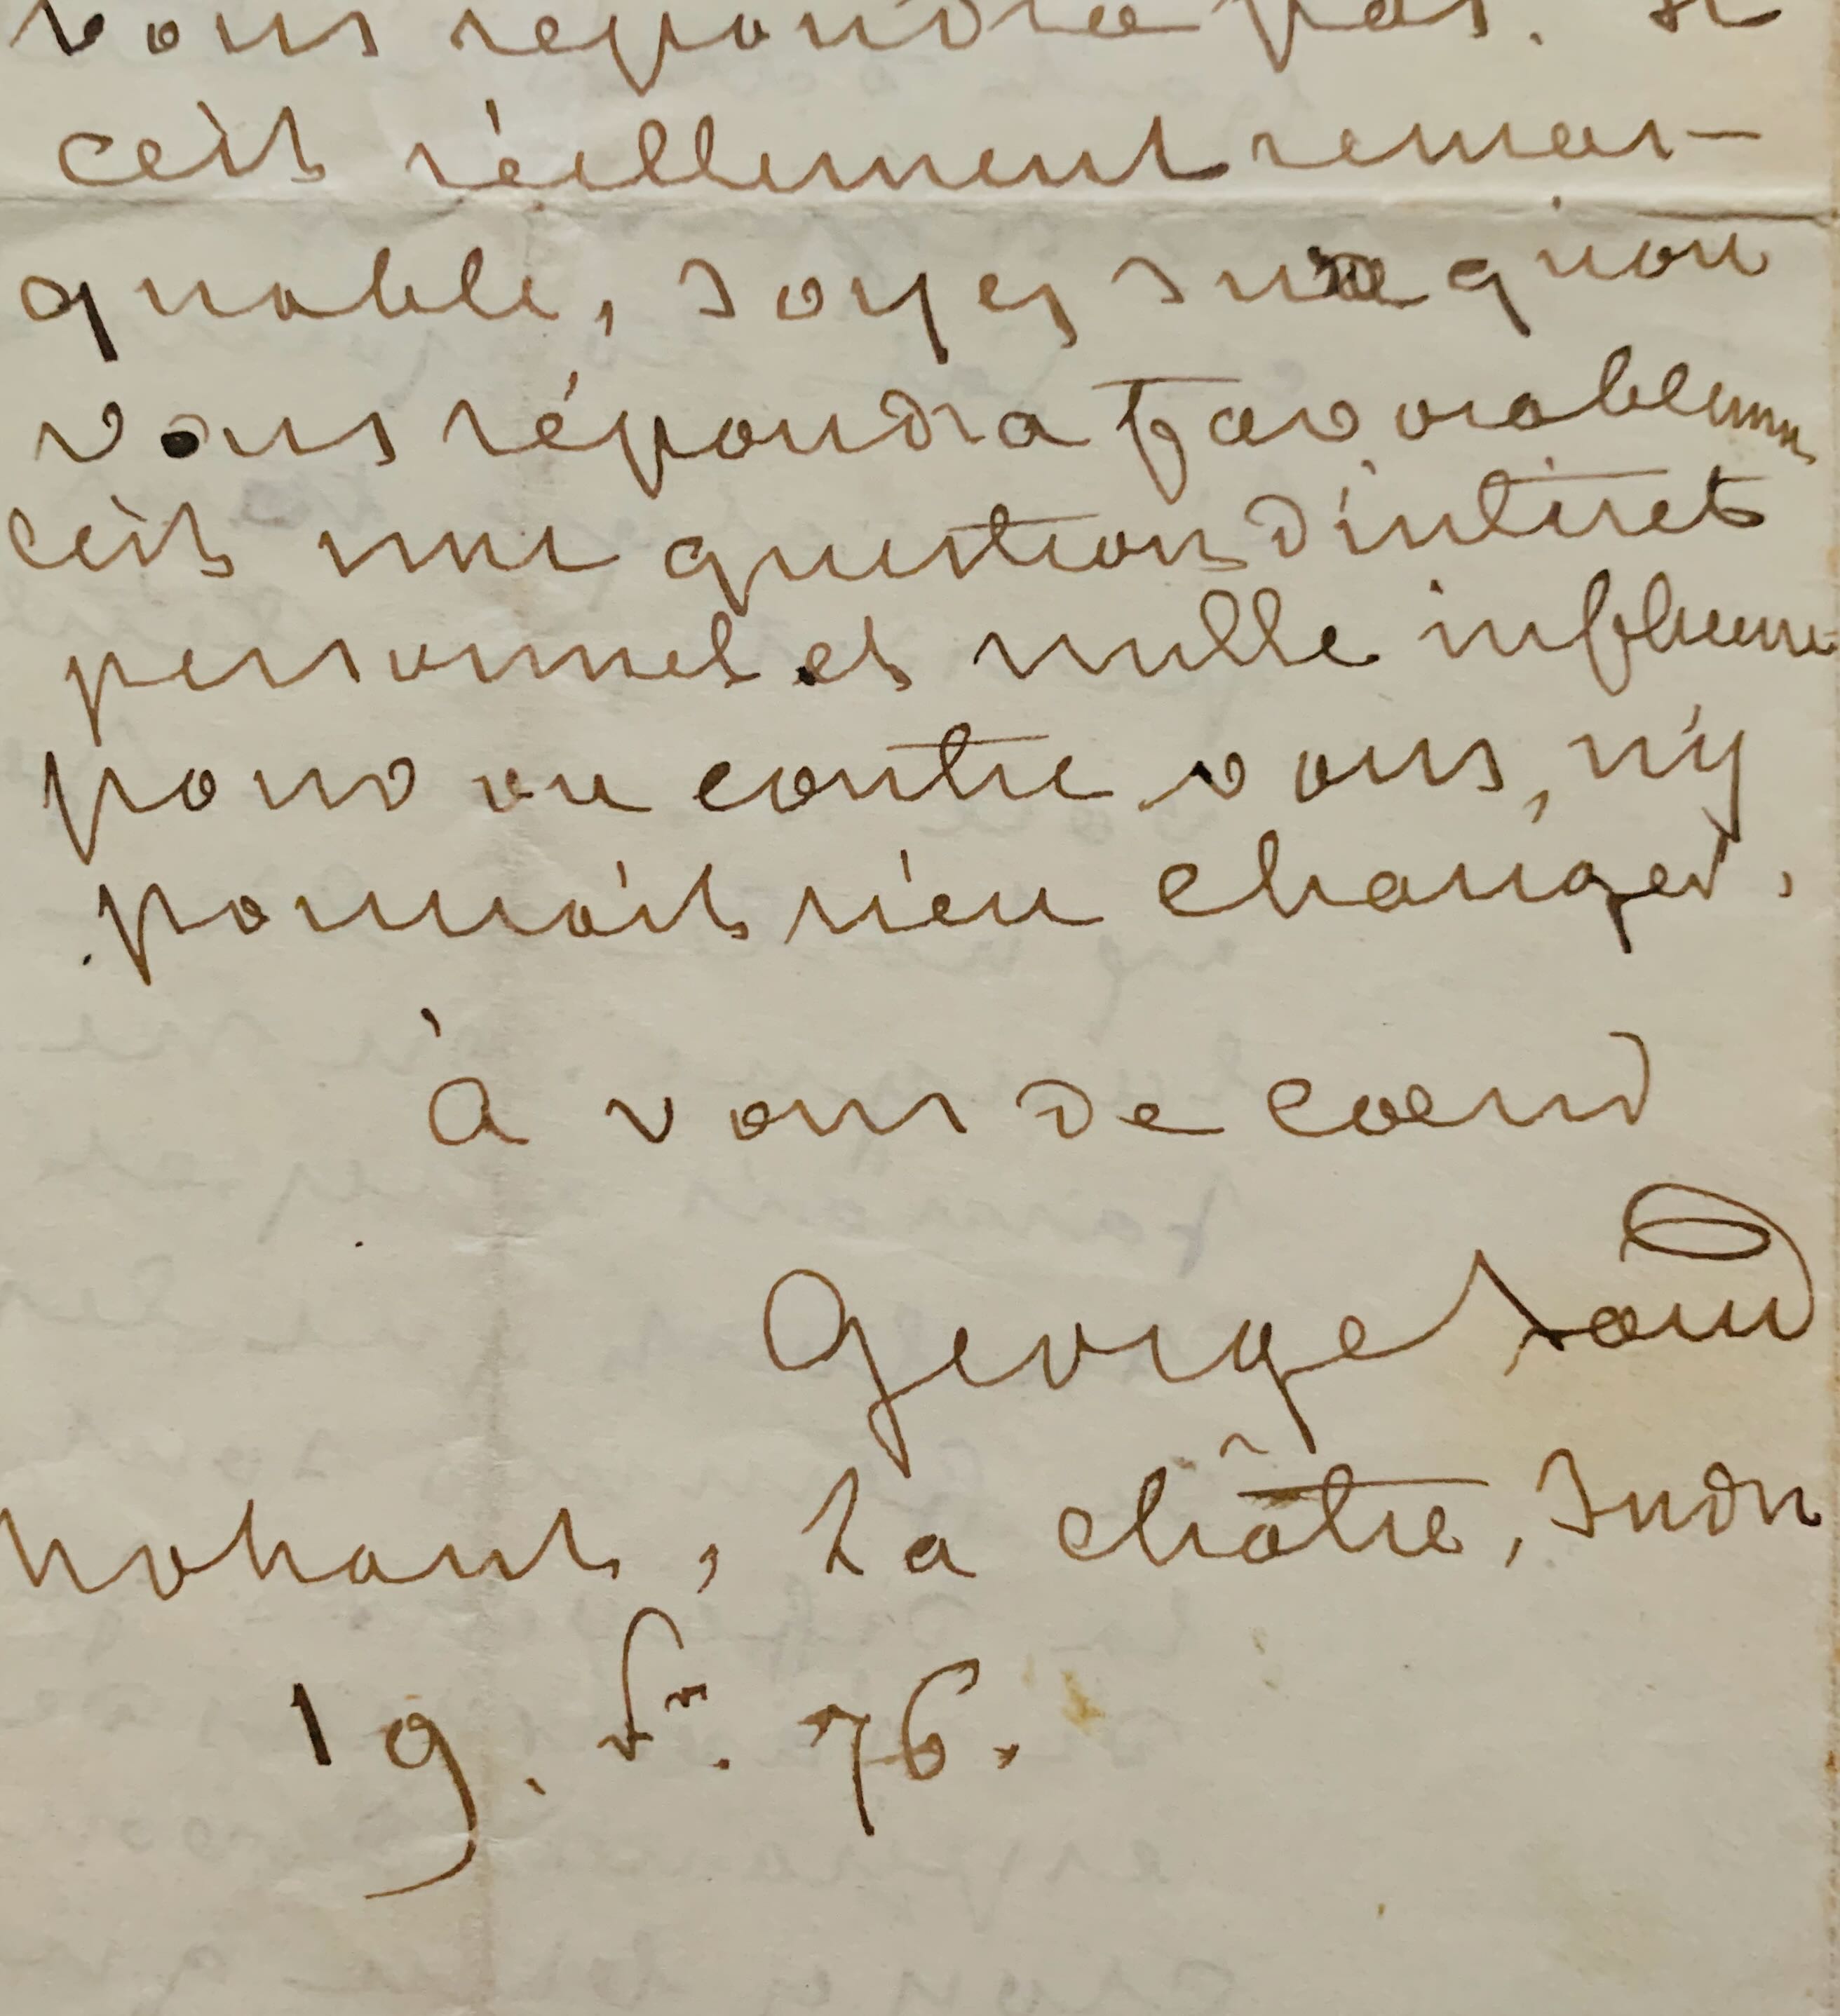 vous répondra pas. Si
c'est réellement remar-
quable, soyez sure qu'on
vous répondra favorablement
c'est une question d'intérêt
personnel et nulle influence
pour ou contre vous, n'y
pourrait rien changer.
à vous de coeur
George Sand
Nohant, La Châtre, Indre
19. fr. 76.